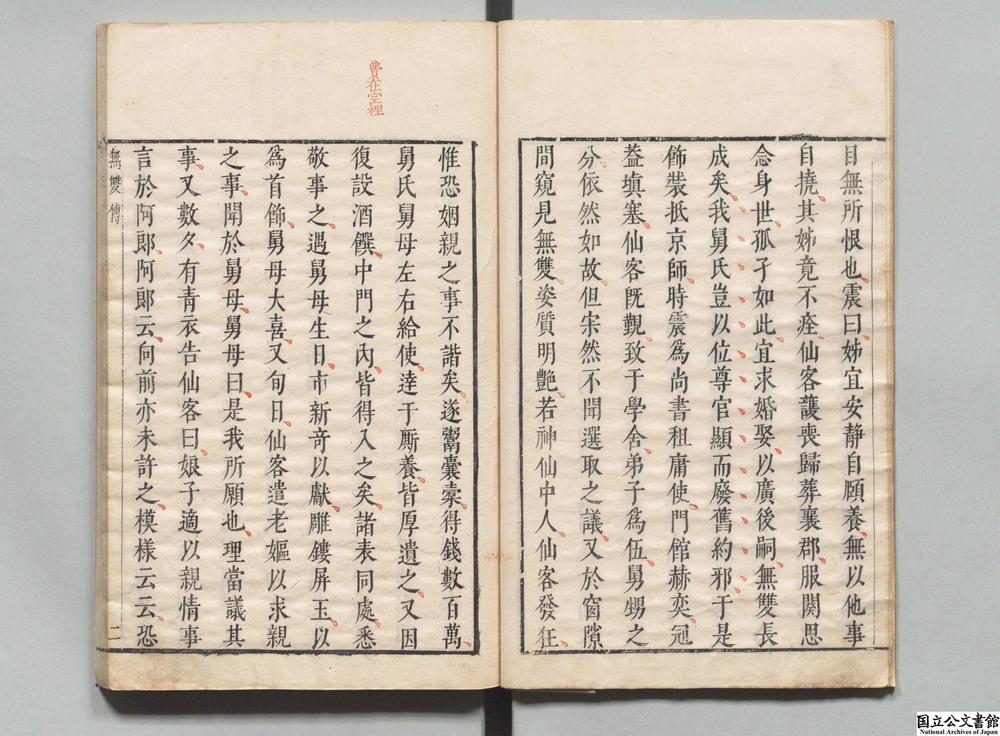 目無所恨也震曰姊宜安靜自願養無以他事
自撓其姊竟不痊仙客護喪歸葬襄鄧服闋思
念身世孤孑如此宜求婚娶以廣後嗣無雙長
成矣我舅氏豈以位尊官顯而廢舊約邪于是
飾裝抵京師時震爲尚書租庸使門館赫奕冠
蓋填塞仙客旣覲致于學舍弟子爲伍舅甥之
分依然如故但寂然不聞選取之議又於窗隙
間窺見無雙姿質明艷若神仙中人仙客發狂
費在空裡
惟恐姻親之事不諧矣遂鬻囊橐得錢數百萬
舅氏舅母左右給使達于厮養皆厚遺之又因
復設酒饌中門之內皆得入之矣諸表同處悉
敬事之遇舅母生日市新奇以獻雕鏤屏玉以
爲首飾舅母大喜又旬日仙客遣老嫗以求親
之事聞於舅母舅母曰是我所願也理當議其
事又數夕有青衣告仙客曰娘子適以親情事
言於阿郎阿郎云向前亦未許之模樣云云恐
無雙傳
二
国立公文書館
National Archives of Japan